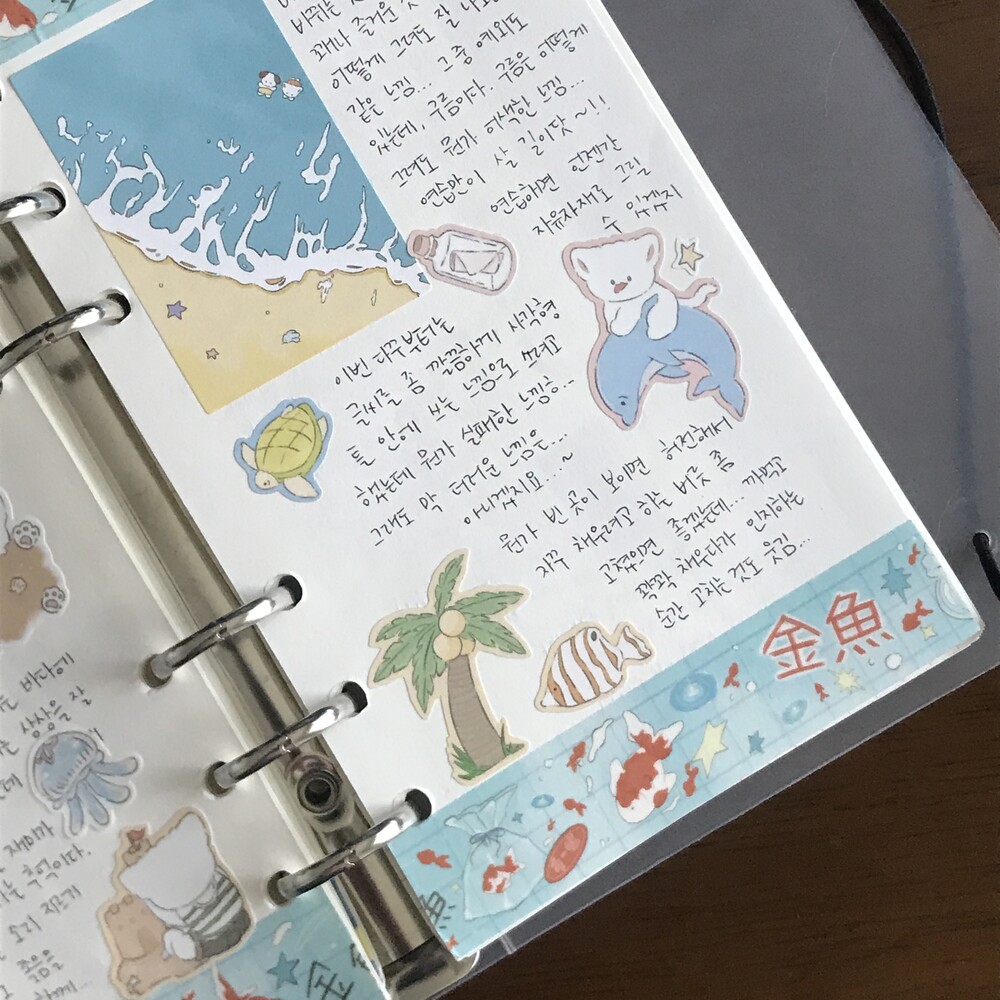 바뀌는
꽤나 즐거운
어떻게 그려도 잘
같은 느낌... 그 중 예외도
있는데, 구름이다. 구름은 어떻게
그려도 뭔가 어색한 느낌...
연습만이 살 길이닷~!!
연습해면 언젠간
자유자재로 그릴
수 있겠지
이번 다꾸부터는
글씨를 좀 깔끔하게 사각형
틀 안에 쓰는 느낌으로 쓰려고
했는데 뭔가 실패한 느낌ㅎ...
그래도 막 더러운 느낌은...
아니겠지요...~
뭔가 빈 곳이 보이면 허전해서
자꾸 채우려고 하는 버릇 좀
고쳤으면 좋겠는데... 까먹고
꽉꽉 채우다가 인지하는
순간 고치는 것도 웃김...
金魚
바다에
상상을 잘
추억이다.